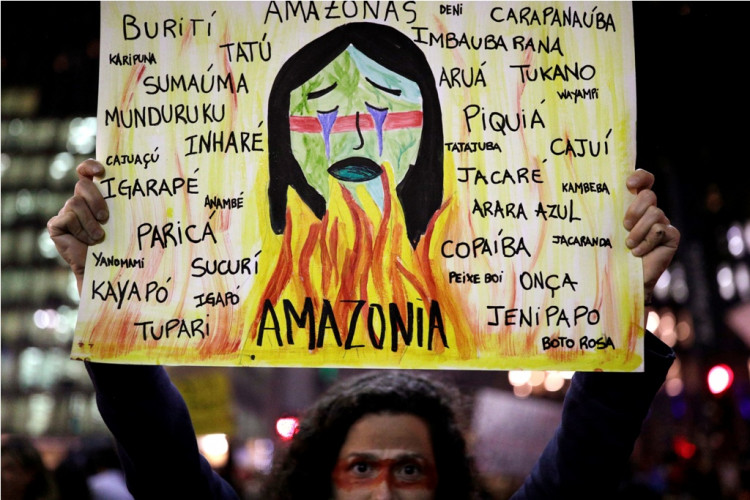 AMAZONAS
DENÍ
BURITÍ
CARAPANAÚBA
KARIPUNA
TATÚ
IMBAUBARANA
SUMAÚMA
ARUÁ
TUKANO
WAYAMPI
MUNDURUKU
PIQUIÁ
INHARÉ
TATAJUBA
CAJUÍ
CAJUAÇÚ
IGARAPÉ
JACARÉ
KAMBEBA
ANAMBÉ
ARARA AZUL
PARICÁ
COPAÍBA
JACARANDA
YANOMAMI
SUCURÍ
PEIXE BOI
ONÇA
KAYAPÓ
IGAPÓ
JENIPAPO
TUPARI
AMAZONIA
BOTO ROSA